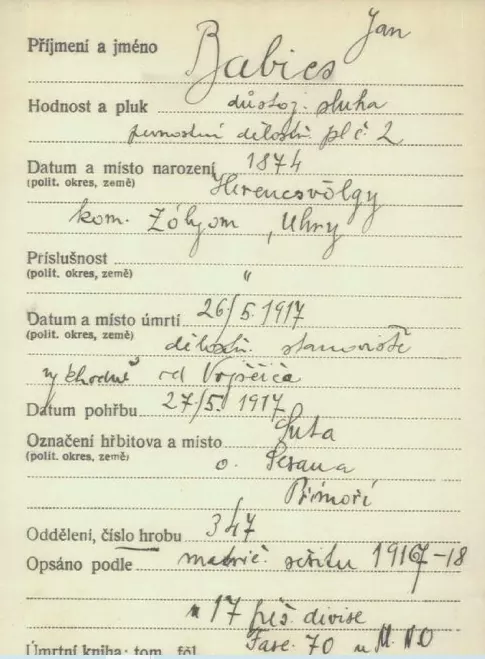 Jan
Příjmení a jméno Babics
Hodnost a pluk důstoj. sluha
pevnostní dělostř. pl č. 2
Datum a místo narození 1874
(polit. okres, země) Herencsvölgy
kom. Zólyom, Uhry
Příslušnost
(polit. okres, země) "
Datum a místo úmrtí 26/5. 1917
(polit. okres, země) dělostř. stanoviště
východně od
Datum pohřbu 27/5. 1917
Označení hřbitova a místo Suta
(polit. okres, země) o. Sesana
Přímoří
Oddělení, číslo hrobu 347
Opsáno podle matrič. sešitu 1917-18
17 pěš. divise
Úmrtní kniha: tom. fol. Fasc. 70 u M.N.O